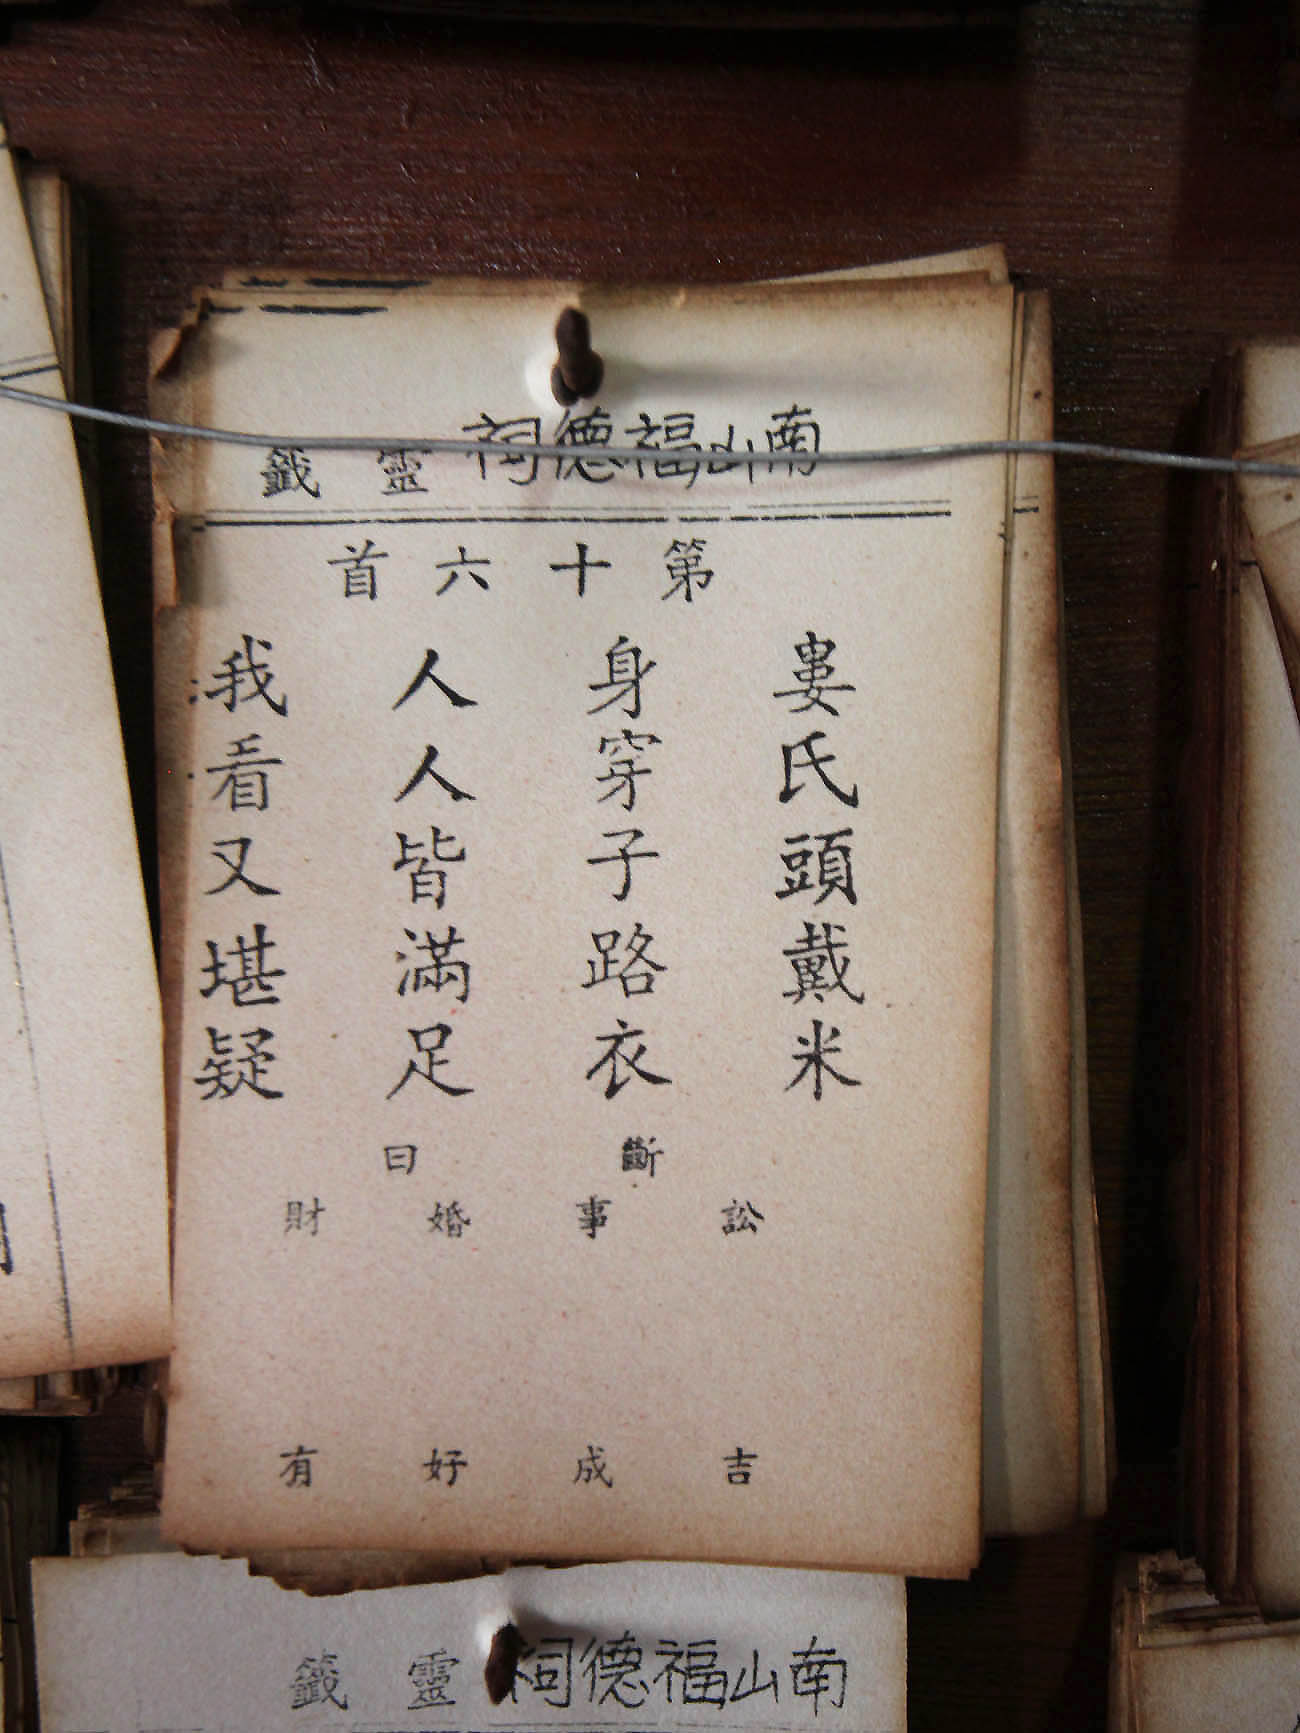 南山福德祠靈籤
第十六首
婁氏頭戴米
身穿子路衣
人人皆滿足
我看又堪疑
斷曰
訟吉
事成
婚好
財有
南山福德祠靈籤